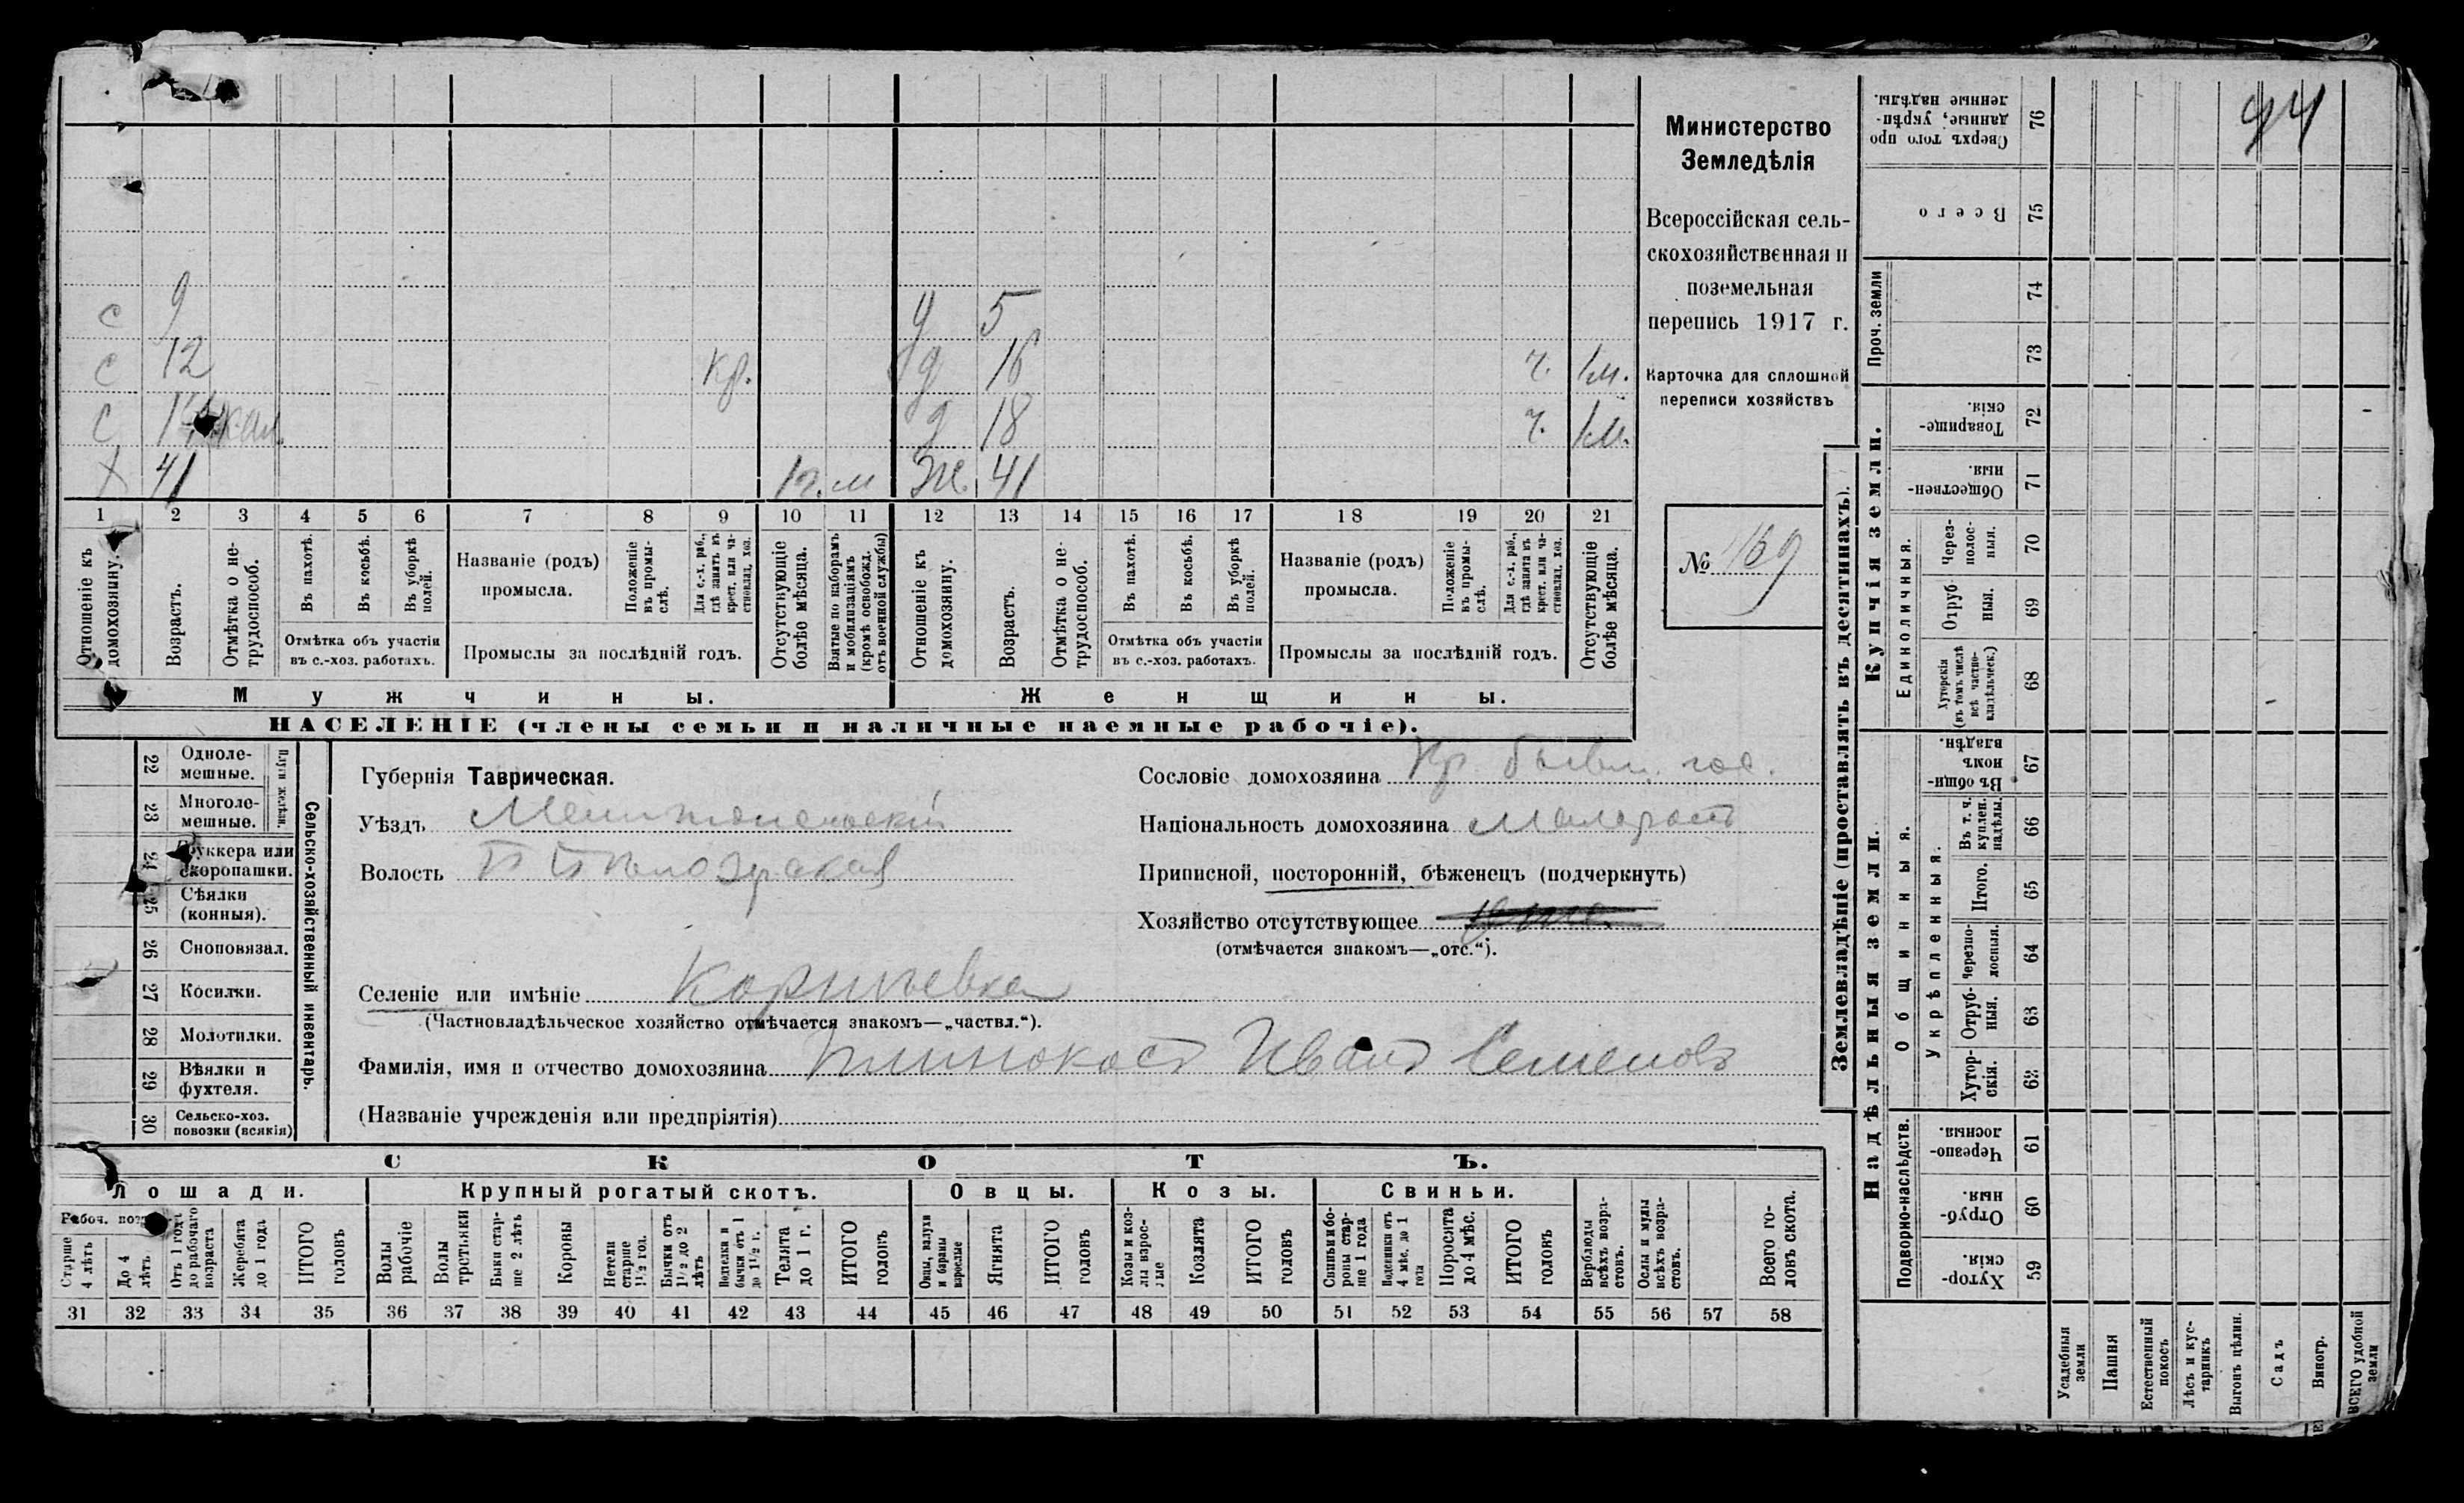 94
с 9 д 5
с 12 кр. д 16 ч. 1м.
с 14 д 18 ч. 1м.
х 41 1г. м ж. 41
1 2 3 4 5 6 7 8 9 10 11 12 13 14 15 16 17 18 19 20 21
Отношеніе къ домохозяину.
Возрастъ.
Отмѣтка о не-трудоспособ.
Въ пахотѣ.
Въ косьбѣ.
Въ уборкѣ полей.
Отмѣтка объ участіи
въ с.-хоз. работахъ.
Названіе (родъ)
промысла.
Положеніе въ промы-слѣ.
Для с.-х. раб., гдѣ занятъ въ крест. или ча-стновлад. хоз.
Промыслы за послѣдній годъ.
Отсутствующіе болѣе мѣсяца.
Взятые по наборамъ и мобилизаціямъ (кромѣ освобожд. отъ военной службы)
Отношеніе къ домохозяину.
Возрастъ.
Отмѣтка о не-трудоспособ.
Въ пахотѣ.
Въ косьбѣ.
Въ уборкѣ полей.
Отмѣтка объ участіи
въ с.-хоз. работахъ.
Названіе (родъ)
промысла.
Положеніе въ промы-слѣ.
Для с.-х. раб., гдѣ занята въ крест. или ча-стновлад. хоз.
Промыслы за послѣдній годъ.
Отсутствующіе болѣе мѣсяца.
Мужчины. Женщины.
НАСЕЛЕНІЕ (члены семьи и наличные наемные рабочіе).
Министерство
Земледѣлія
Всероссійская сель-
скохозяйственная и
поземельная
перепись 1917 г.
Карточка для сплошной
переписи хозяйствъ
№ 169
22 Одноле-мешные.
23 Многоле-мешные.
Плуги желѣзн.
24 Буккера или скоропашки.
25 Сѣялки (конныя).
26 Сноповязал.
27 Косилки.
28 Молотилки.
29 Вѣялки и фухтеля.
30 Сельско-хоз. повозки (всякія)
Сельско-хозяйственный инвентарь.
Губернія Таврическая.
Уѣздъ Мелитопольскій
Волость
Сословіе домохозяина Кр. бывш. гос.
Національность домохозяина Малороссъ
Приписной, посторонній, бѣженецъ (подчеркнуть)
Хозяйство отсутствующее
(отмѣчается знакомъ—„отс.“).
Селеніе или имѣніе
(Частновладѣльческое хозяйство отмѣчается знакомъ—„частвл.“).
Фамилія, имя и отчество домохозяина Иванъ Семеновъ
(Названіе учрежденія или предпріятія)
СКОТЪ.
Лошади. Крупный рогатый скотъ. Овцы. Козы. Свиньи.
Рабоч.
Старше 4 лѣтъ
До 4 лѣтъ.
Отъ 1 года до рабочаго возраста
Жеребята до 1 года
ИТОГО головъ
Волы рабочіе
Волы третьяки
Быки стар-ше 2 лѣтъ
Коровы
Нетели старше 1½ год.
Бычки отъ 1½ до 2 лѣтъ
Подтелки и бычки отъ 1 до 1½ г.
Телята до 1 г.
ИТОГО головъ
Овцы, валухи и бараны взрослые
Ягнята
ИТОГО головъ
Козы и коз-лы взрос-лые
Козлята
ИТОГО головъ
Свиньи и бо-ровы стар-ше 1 года
Подсвинки отъ 4 мѣс. до 1 года
Поросята до 4 мѣс.
ИТОГО головъ
Верблюды всѣхъ возра-стовъ.
Ослы и мулы всѣхъ возра-стовъ.
Всего го-ловъ скота.
31 32 33 34 35 36 37 38 39 40 41 42 43 44 45 46 47 48 49 50 51 52 53 54 55 56 57 58
Землевладѣніе (проставлять въ десятинахъ).
Сверхъ того про данные, укрѣп-ленные надѣлы. 76
Всего 75
Проч. земли 74
73
Купчія земли.
Товарище-скія. 72
Обществен-ныя. 71
Единоличныя.
Через-полос-ныя. 70
Отруб-ныя. 69
Хуторскія (въ томъ числѣ всѣ частно-владѣльческ.) 68
Надѣльныя земли.
Общинныя.
Въ общи-номъ владѣн. 67
Укрѣпленныя.
Въ т. ч. куплен. надѣлы. 66
Итого. 65
Черезпо-лосныя. 64
Отруб-ныя. 63
Хутор-скія. 62
Подворно-наслѣдств.
Черезпо-лосныя. 61
Отруб-ныя. 60
Хутор-скія. 59
Усадебныя земли
Пашня
Естественный покосъ
Лѣсъ и кус-тарникъ
Выгонъ цѣлин.
Садъ
Виногр.
ВСЕГО удобной земли